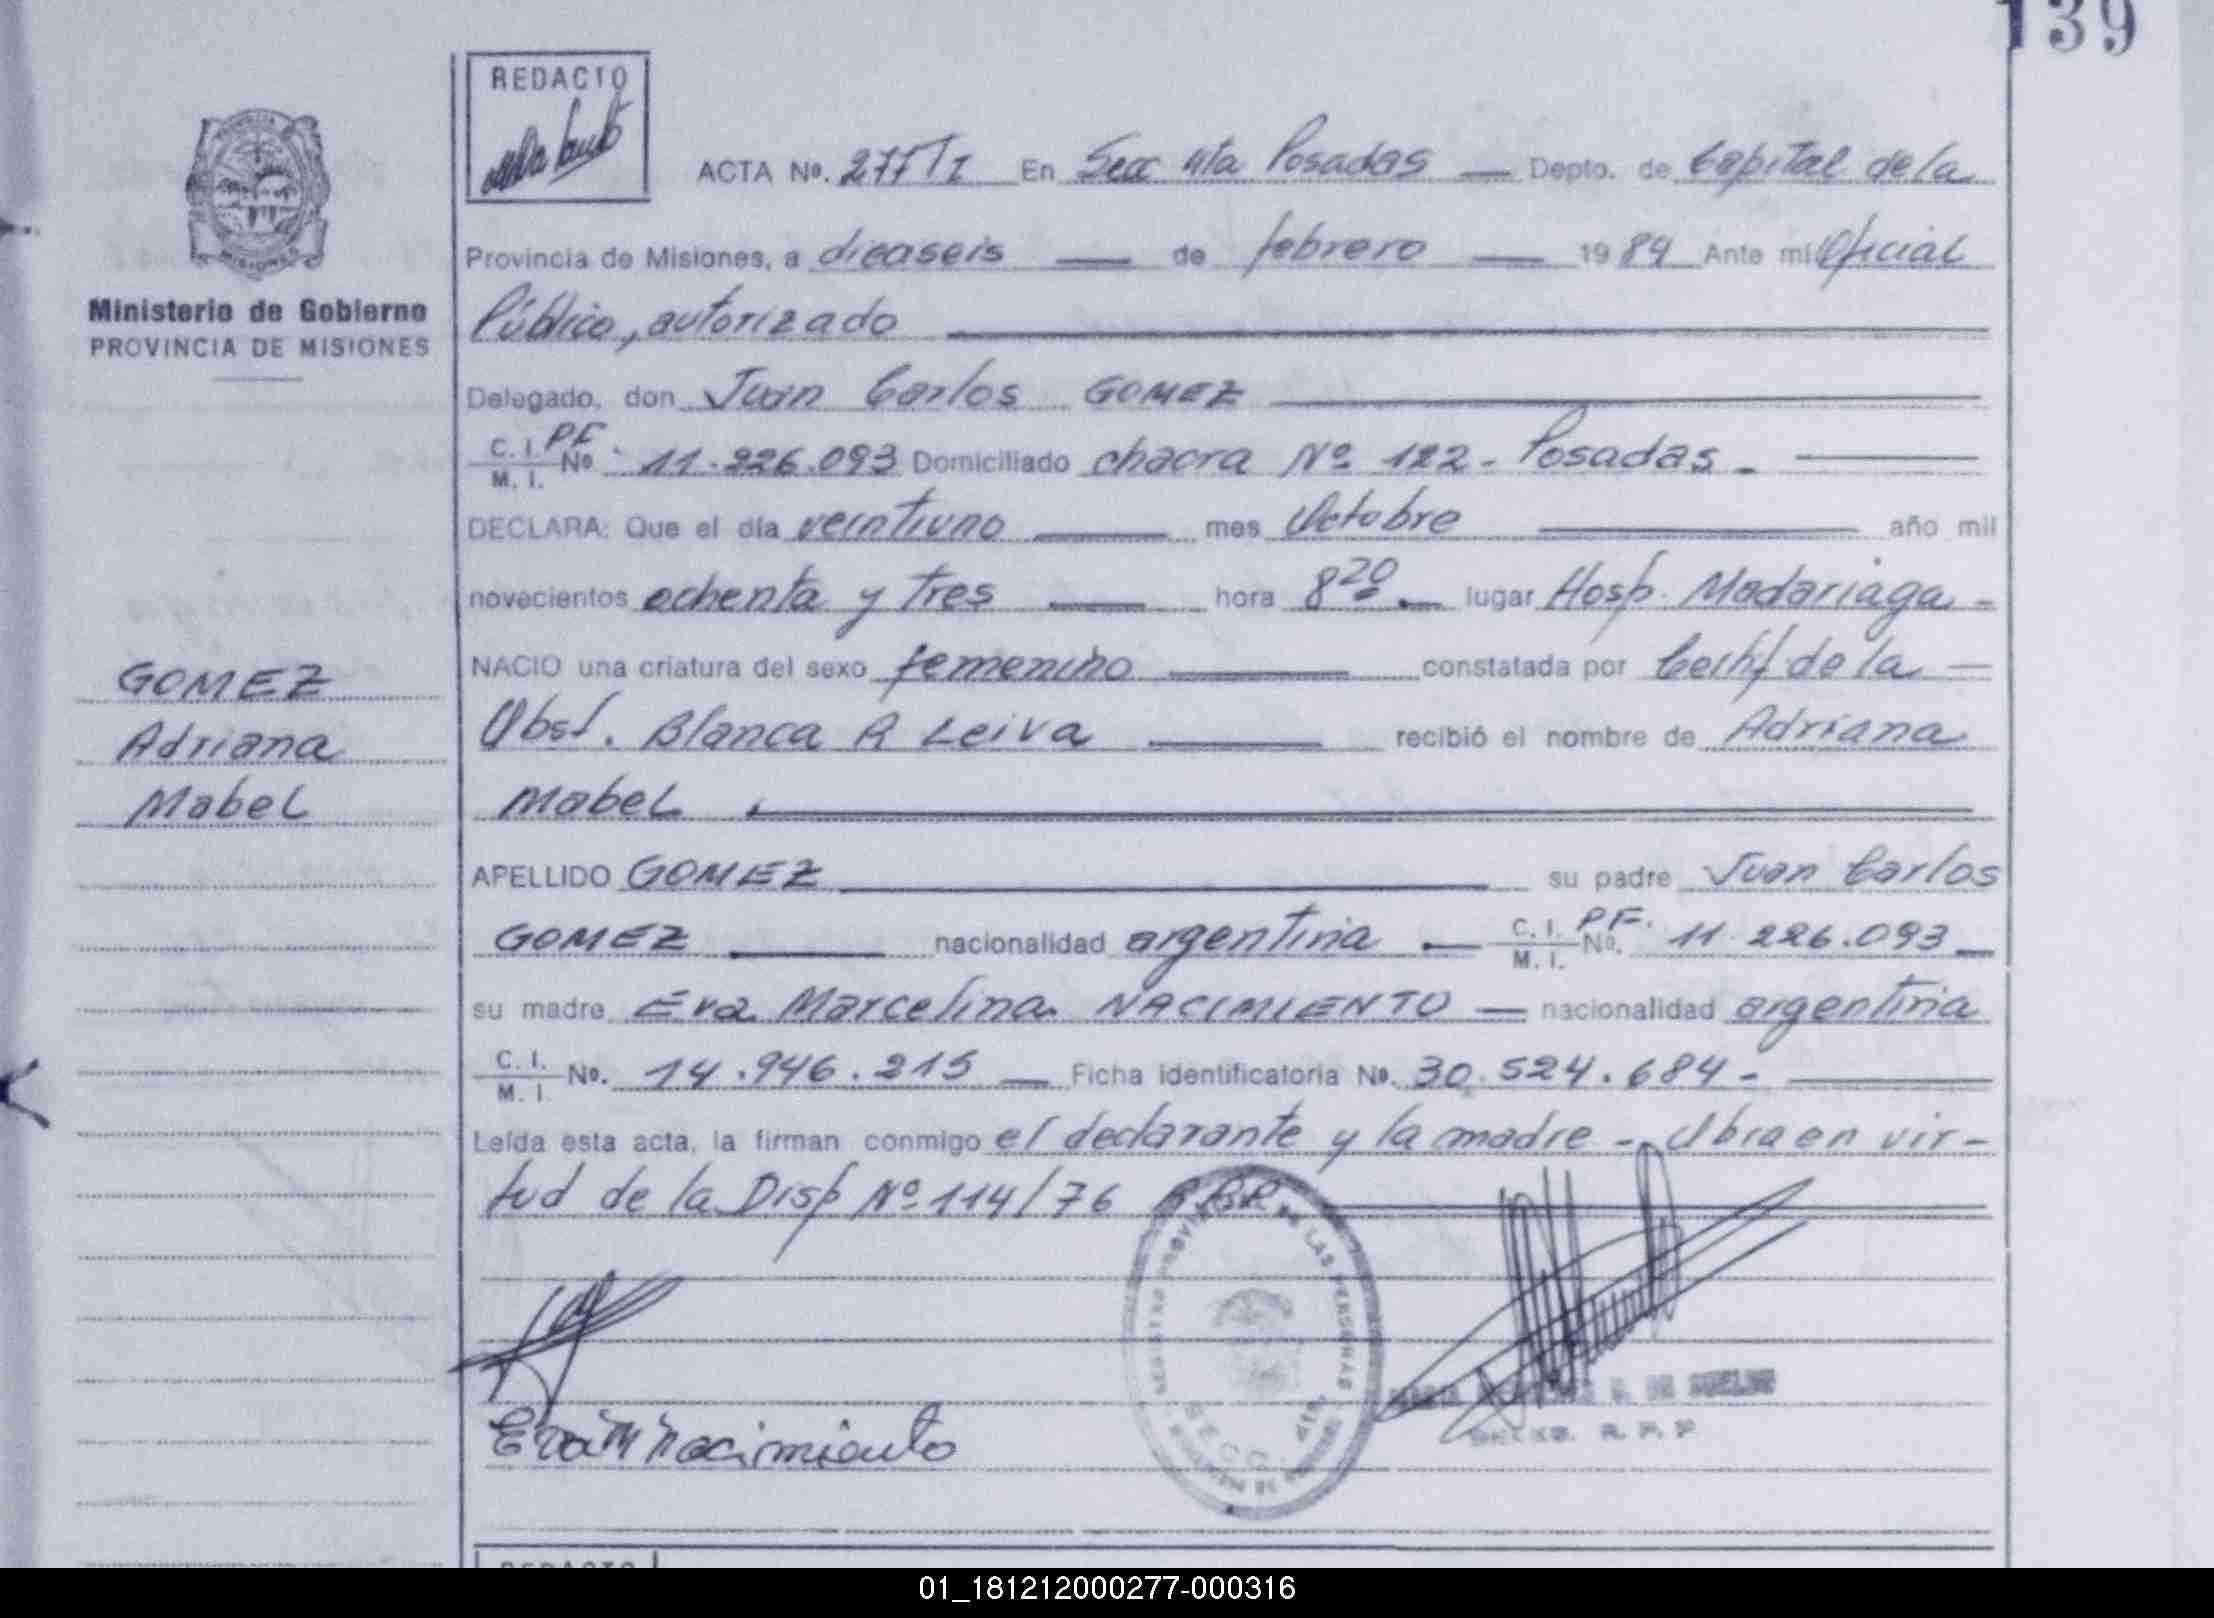 139
REDACTO
ACTA Nº. 277 T I En Secc 4ta Posadas — Depto. de Capital de la
MISIONES
Provincia de Misiones, a dieaseis — de febrero — 1984 Ante mi Oficial
Ministerio de Gobierno
PROVINCIA DE MISIONES
Público, autorizado
Delegado, don Juan Carlos GOMEZ
C. I. PF. M. I. Nº 11.226.093 Domiciliado chacra Nº 122 - Posadas. —
DECLARA: Que el día veintiuno — mes Octubre — año mil
novecientos ochenta y tres — hora 8 20 — lugar Hosp. Madariaga -
NACIO una criatura del sexo femenino — constatada por Certif de la —
Obst. Blanca R Leiva — recibió el nombre de Adriana
Mabel
GOMEZ
Adriana
Mabel
APELLIDO GOMEZ — su padre Juan Carlos
GOMEZ — nacionalidad argentina — C. I. PF. M. I. Nº. 11.226.093 —
su madre Eva Marcelina NACIMIENTO — nacionalidad argentina
C. I. M. I. Nº. 14.946.215 — Ficha identificatoria Nº. 30.524.684 - —
Leída esta acta, la firman conmigo el declarante y la madre - Obra en vir-
tud de la Disp Nº 114/76
REGISTRO PROVINCIAL DE LAS PERSONAS
SECC. 4ta
Eva M Nacimiento
R. P. P
REDACTO
01_181212000277-000316